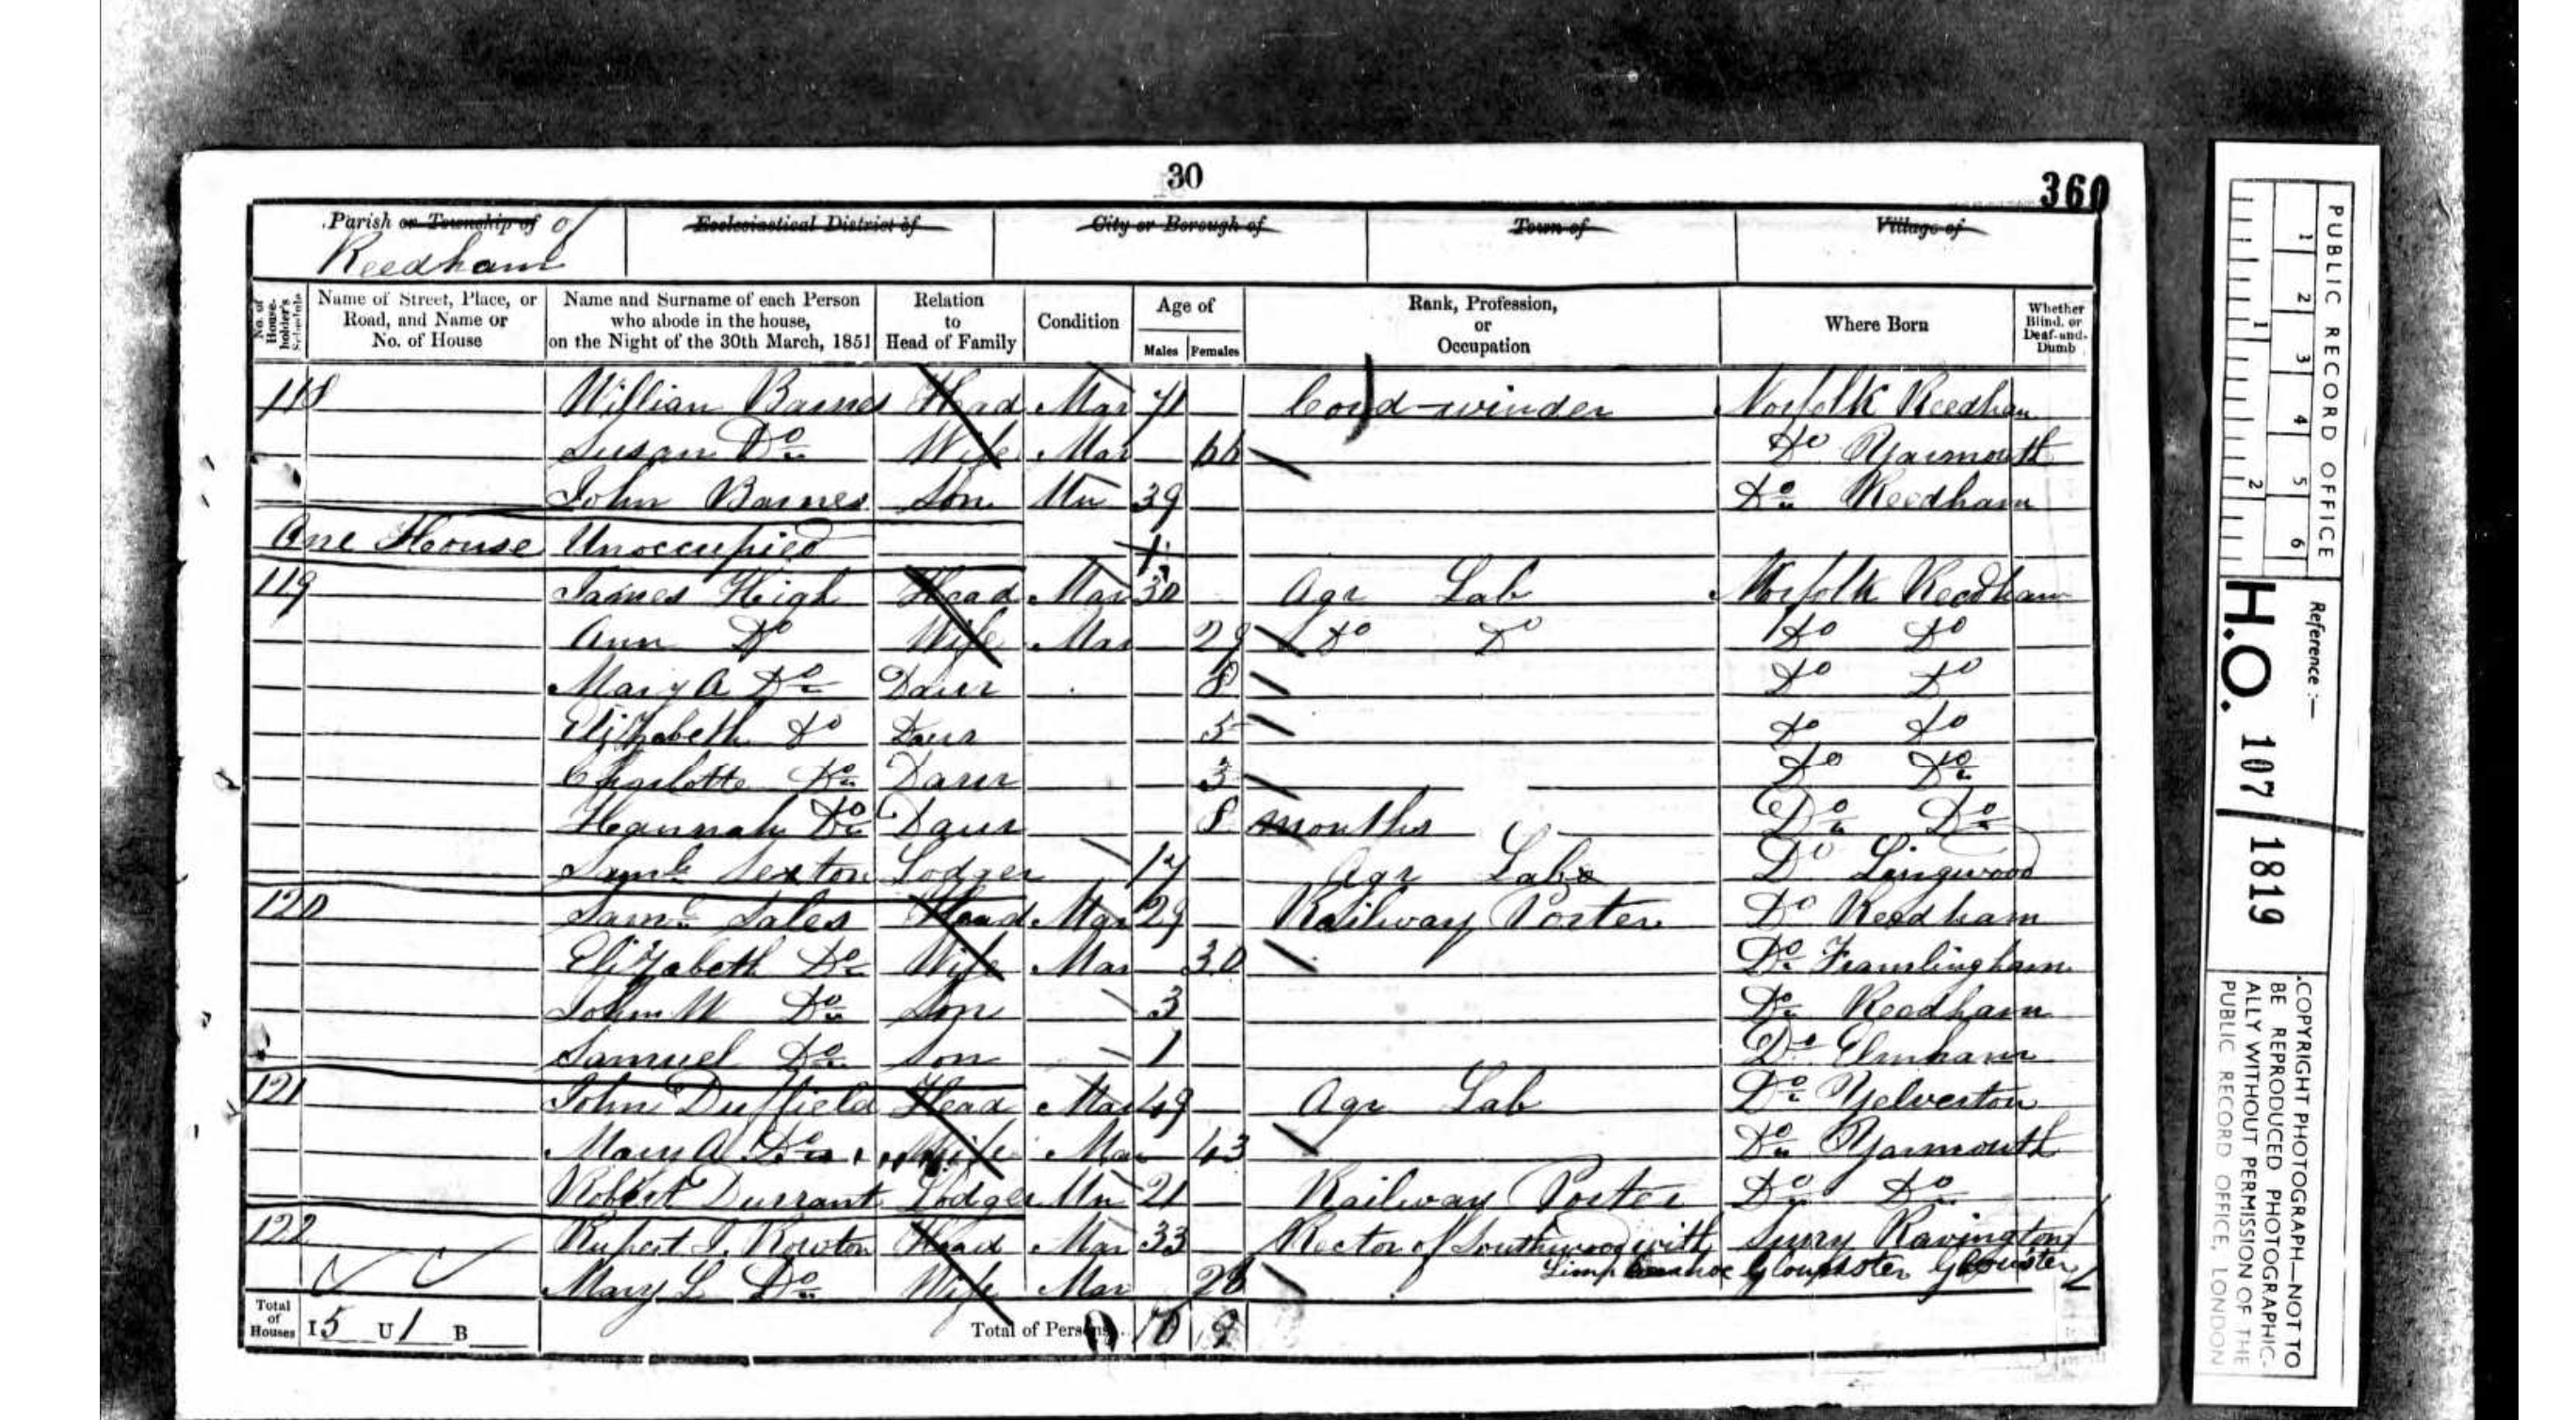 30
360
Parish or Township of of
Reedham
Ecclesiastical District of
City or Borough of
Town of
Village of
No. of House-holder's Schedule
Name of Street, Place, or Road, and Name or No. of House
Name and Surname of each Person who abode in the house, on the Night of the 30th March, 1851
Relation to Head of Family
Condition
Age of
Males Females
Rank, Profession, or Occupation
Where Born
Whether Blind, or Deaf-and-Dumb
118 William Barnes Head Mar 71 Cord-winder Norfolk Reedham
Susan Do Wife Mar 66 Do Yarmouth
John Barnes Son Un 39 Do Reedham
One House Unoccupied
119 James High Head Mar 30 Agr Lab Norfolk Reedham
Ann Do Wife Mar 29 Do Do Do Do
Mary A Do Daur 8 Do Do
Elizabeth Do Daur 5 Do Do
Charlotte Do Daur 3 Do Do
Hannah Do Daur 8 months Do Do
Saml Sexton Lodger Agr Lab Do Lingwood
120 Saml Sales Head Mar 29 Railway Porter Do Reedham
Elizabeth Do Wife Mar 30 Do Framlingham
John W Do Son 3 Do Reedham
Samuel Do Son 1 Do Elmham
121 John Duffield Head Mar 49 Agr Lab Do Yelverton
Mary A Do Wife Mar 43 Do Yarmouth
Robert Durrant Lodger Un 21 Railway Porter Do Do
122 Rupert J. Rowton Head Mar 33 Rector of Southwood with Surry
Limpenhoe
Mary L Do Wife Mar 28 Gloucester
Total of Houses I 5 U 1 B
Total of Persons 10 9
PUBLIC RECORD OFFICE
1 2 3 4 5 6
1 2
Reference :-
H.O. 107/1819
COPYRIGHT PHOTOGRAPH—NOT TO
BE REPRODUCED PHOTOGRAPHIC-
ALLY WITHOUT PERMISSION OF THE
PUBLIC RECORD OFFICE, LONDON